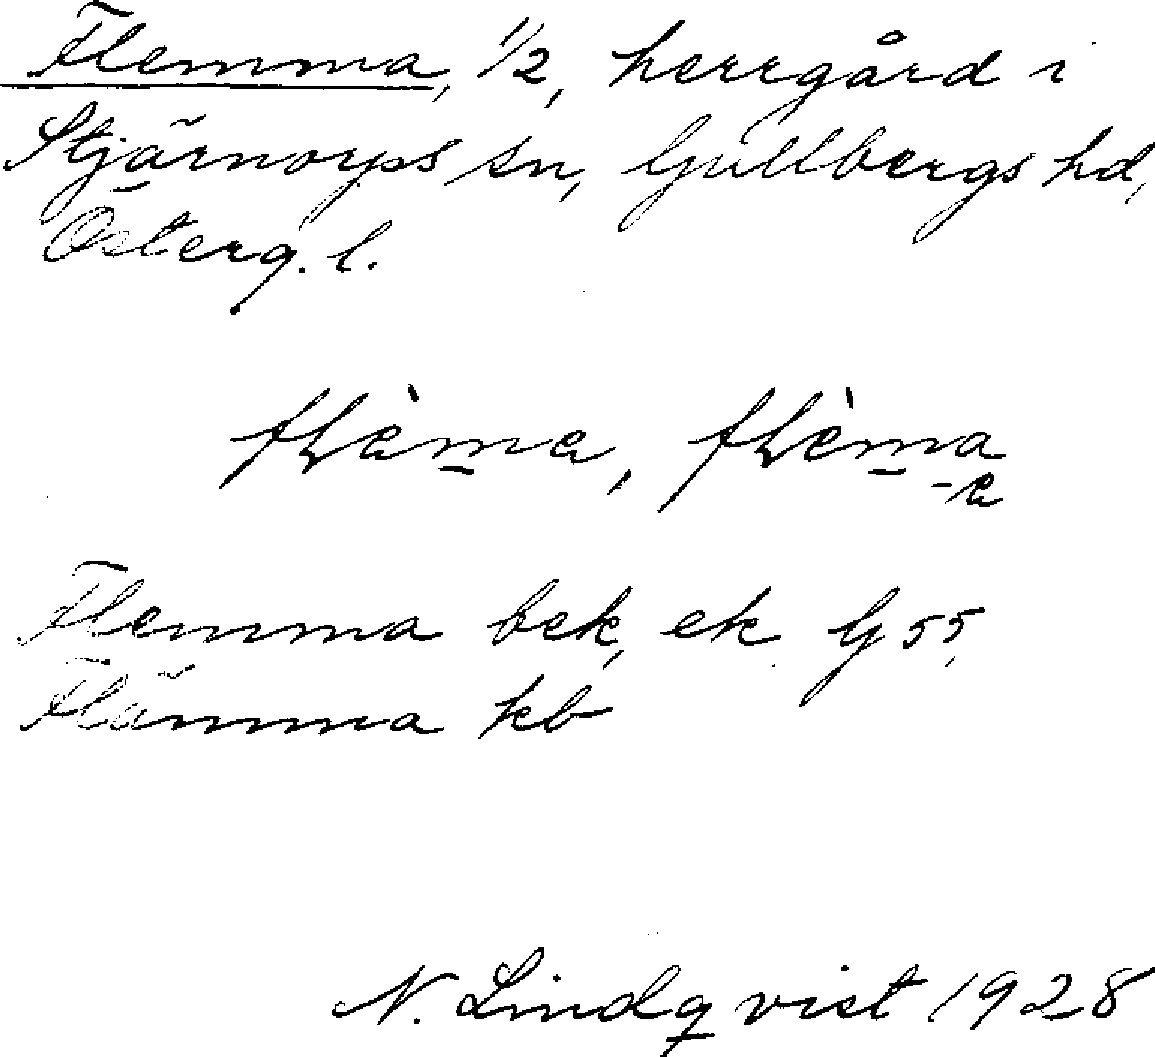 Flemma, 1/2, herrgård i
Stjärnorps sn, Gullbergs hd,
Österg. l.
Flemma bek, ek G 55,
Flämma kb
N. Lindqvist 1928